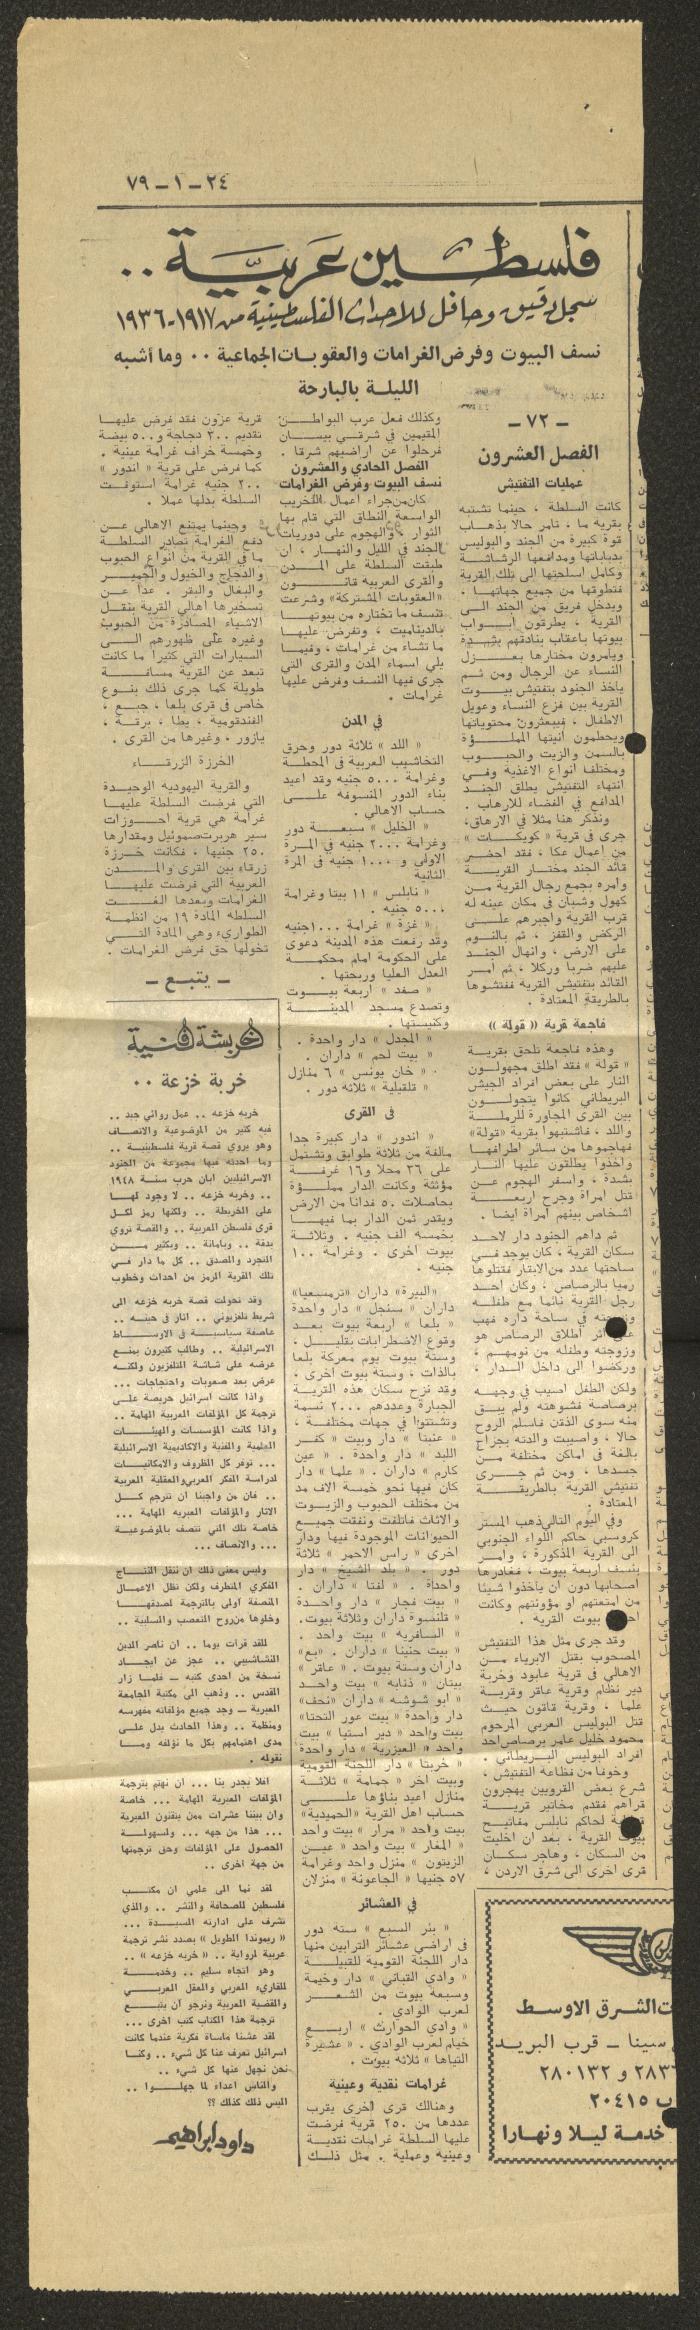 ٢٤ – ١ – ٧٩
فلسطين عربية ..
سجل دقيق وحافل للاحداث الفلسطينية من ١٩١٧-١٩٣٦
نسف البيوت وفرض الغرامات والعقوبات الجماعية .. وما أشبه
الليلة بالبارحة
– ٧٢ –
الفصل العشرون
عمليات التفتيش
كانت السلطة ، حينما تشتبه
بقرية ما ، تامر حالا بذهاب
قوة كبيرة من الجند والبوليس
بدباباتها ومدافعها الرشاشة
وكامل اسلحتها الى تلك القرية
فتطوقها من جميع جهاتها .
ويدخل فريق من الجند الى
القرية ، يطرقون ابواب
بيوتها باعقاب بنادقهم بشدة
ويامرون مختارها بعزل
النساء عن الرجال ومن ثم
ياخذ الجنود بتفتيش بيوت
القرية بين فزع النساء وعويل
الاطفال ، فيبعثرون محتوياتها
ويحطمون آنيتها المملؤة
بالسمن والزيت والحبوب
ومختلف انواع الاغذية وفي
انتهاء التفتيش يطلق الجند
المدافع في الفضاء للارهاب .
ونذكر هنا مثلا في الارهاق،
جرى في قرية « كويكات »
من اعمال عكا ، فقد احضر
قائد الجند مختار القرية
وامره بجمع رجال القرية من
كهول وشبان في مكان عينه له
قرب القرية واجبرهم على
الركض والقفز ، ثم بالنوم
على الارض ، وانهال الجند
عليهم ضربا وركلا ، ثم امر
القائد بتفتيش القرية ففتشوها
بالطريقة المعتادة .
فاجعة قرية « قولة »
وهذه فاجعة تلحق بقرية
« قولة » فقد اطلق مجهولون
النار على بعض افراد الجيش
البريطاني كانوا يتجولون
بين القرى المجاورة للرملة
واللد ، فاشتبهوا بقرية «قولة»
فهاجموها من سائر اطرافها
واخذوا يطلقون عليها النار
بشدة ، واسفر الهجوم عن
قتل امراة وجرح اربعة
اشخاص بينهم امراة ايضا .
ثم داهم الجنود دار لاحد
سكان القرية ، كان يوجد في
ساحتها عدد من الابقار فقتلوها
رميا بالرصاص ، وكان احد
رجل القرية نائما مع طفله
وزوجته في ساحة داره فهب
على اثر اطلاق الرصاص هو
وزوجته وطفله من نومهم ،
وركضوا الى داخل الدار .
ولكن الطفل اصيب في وجهه
برصاصة فشوهته ولم يبق
منه سوى الذقن فاسلم الروح
حالا ، واصيبت والدته بجراح
بالغة في اماكن مختلفة من
جسدها ، ومن ثم جرى
تفتيش القرية بالطريقة
المعتادة .
وفي اليوم التالي ذهب المستر
كروسبي حاكم اللواء الجنوبي
الى القرية المذكورة ، وامر
بنسف اربعة بيوت ، فغادرها
اصحابها دون ان ياخذوا شيئا
من امتعتهم او مؤونتهم وكانت
بيوت القريه .
وقد جرى مثل هذا التفتيش
المصحوب بقتل الابرياء من
الاهالي في قرية عابود وخربة
دير نظام وقرية عاقر وقرية
علما ، وقرية قانون حيث
قتل البوليس العربي المرحوم
محمود خليل عامر برصاص احد
افراد البوليس البريطاني .
وخوفا من فظاعة التفتيش ،
شرع بعض القرويين يهجرون
قراهم فقدم مخاتير قرية
لحاكم نابلس مفاتيح
بيوت القرية ، بعد ان اخليت
من السكان ، وهاجر سكان
قرى اخرى الى شرق الاردن ،
وكذلك فعل عرب البواطن
المقيمين في شرقي بيسان
فرحلوا عن اراضيهم شرقا .
الفصل الحادي والعشرون
نسف البيوت وفرض الغرامات
كان من جراء اعمال التخريب
الواسعة النطاق التي قام بها
الثوار ، والهجوم على دوريات
الجند في الليل والنهار ، ان
طبقت السلطة على المدن
والقرى العربية قانون
«العقوبات المشتركة» وشرعت
تنسف ما تختاره من بيوتها
بالديناميت ، وتفرض عليها
ما تشاء من غرامات ، وفيما
يلي اسماء المدن والقرى التي
جرى فيها النسف وفرض عليها
غرامات .
في المدن
« اللد » ثلاثة دور وحرق
التخاشيب العربية في المحطة
وغرامة ٥٠٠٠ جنيه وقد اعيد
بناء الدور المنسوفة على
حساب الاهالي .
« الخليل » سبعة دور
وغرامة ٢٠٠٠ جنيه في المرة
الاولى و ١٠٠٠ جنيه في المرة
الثانية
« نابلس » ١١ بيتا وغرامة
٥٠٠٠ جنيه .
« غزة » غرامة ١٠٠٠ جنيه
وقد رفعت هذه المدينة دعوى
على الحكومة امام محكمة
العدل العليا وربحتها .
« صفد » اربعة بيوت
وتصدع مسجد المدينة
وكنيستها .
« المجدل » دار واحدة .
« بيت لحم » داران .
« خان يونس » ٦ منازل
« قلقيلية » ثلاثة دور .
في القرى
« اندور » دار كبيرة جدا
مالفة من ثلاثة طوابق وتشتمل
على ٣٦ محلا و١٦ غرفة
مؤثثة وكانت الدار مملؤة
بحاصلات ٥٠ فدانا من الارض
ويقدر ثمن الدار بما فيها
بخمسه الف جنيه . وثلاثة
بيوت اخرى . وغرامة ١٠٠
جنيه .
« البيرة » داران «ترمسعيا»
داران « سنجل » دار واحدة
« بلعا » اربعة بيوت بعد
وقوع الاضطرابات بقليل ،
وستة بيوت يوم معركة بلعا
بالذات ، وستة بيوت اخرى ،
وقد نزح سكان هذه القرية
الجبارة وعددهم ٢٠٠٠ نسمة
وتشتتوا في جهات مختلفة ،
« عنبتا » دار وبيت « كفر
اللبد » دار واحدة . « عين
كارم » داران . « علما » دار
كان فيها نحو خمسة الاف مد
من مختلف الحبوب والزيوت
والاثاث فاتلفت ونفقت جميع
الحيوانات الموجودة فيها ودار
اخرى « راس الاحمر » ثلاثة
دور . « بلد الشيخ » دار
واحداة . « لفتا » داران .
« بيت فجار » دار واحدة
« قلنسوة داران وثلاثة بيوت.
« السافريه » بيت واحد .
« بيت حنينا » داران . «يع»
داران وستة بيوت . « عاقر »
بيتان « ذنابه » بيت واحد
« ابو شوشه » داران «نحف»
دار واحدة « بيت عور التحتا»
بيت واحد « دير استيا » بيت
واحد « العيزرية » دار واحدة
« خربتا » دار اللجنة القومية
وبيت اخر « حمامة » ثلاثة
منازل اعيد بناؤها على
حساب اهل القرية «الحميدية»
بيت واحد « مرار » بيت واحد
« المغار » بيت واحد « عين
الزيتون » منزل واحد وغرامة
٥٧ جنيها « الجاعونة » منزلان
في العشائر
« بئر السبع » سته دور
في اراضي عشائر الترابين منها
دار اللجنة القومية للقبيلة
« وادي القباني » دار وخيمة
وسبعة بيوت من الشعر
لعرب الوادي .
« وادي الحوارث » اربع
خيام لعرب الوادي . « عشيرة
التياها » ثلاثه بيوت .
غرامات نقدية وعينية
وهنالك قرى اخرى يقرب
عددها من ٢٥٠ قرية فرضت
عليها السلطة غرامات نقدية
وعينيه وعملية . مثل ذلك
قرية عزون فقد فرض عليها
تقديم ٣٠٠ دجاجة و٥٠٠ بيضة
وخمسة خراف غرامة عينية .
كما فرض على قرية « اندور »
٢٠٠ جنيه غرامة استوفت
السلطة بدلها عملا .
وحينما يمتنع الاهالي عن
دفع الغرامة تصادر السلطة
ما في القرية من انواع الحبوب
والدجاج والخيول والحمير
والبغال والبقر . عدا عن
تسخيرها اهالي القرية بنقل
الاشياء المصادرة من الحبوب
وغيره على ظهورهم الى
السيارات التي كثيرا ما كانت
تبعد عن القرية مسافة
طويلة كما جرى ذلك بنوع
خاص في قرى بلعا ، جبع ،
الفندقومية ، يطا ، برقة ،
يازور ، وغيرها من القرى .
الخرزة الزرقاء
والقرية اليهودية الوحيدة
التي فرضت السلطة عليها
غرامة هي قرية احوزات
سير هربرت صموئيل ومقدارها
٢٥٠ جنيها ، فكانت خرزة
زرقاء بين القرى والمدن
العربية التي فرضت عليها
الغرامات وبعدها الغت
السلطه المادة ١٩ من انظمة
الطواريء وهي المادة التي
تخولها حق فرض الغرامات .
– يتبع –
خربشة فنية
خربة خزعة ..
خربه خزعه .. عمل روائي جيد ..
فيه كثير من الموضوعية والانصاف
وهو يروي قصة قرية فلسطينية ..
وما احدثه فيها مجموعة من الجنود
الاسرائيليين ابان حرب سنة ١٩٤٨
.. وخربه خزعه .. لا وجود لها
على الخريطة .. ولكنها رمز لكل
قرى فلسطين العربية .. والقصة تروي
بدقة .. وبامانة .. وبكثير من
التجرد والصدق .. كل ما دار في
تلك القرية الرمز من احداث وخطوب
وقد تحولت قصة خربه خزعه الى
شريط تلفزيوني .. اثار في حينه ..
عاصفة سياسية في الاوساط
الاسرائيلية .. وطالب كثيرون بمنع
عرضه على شاشة التلفزيون ولكنه
عرض بعد صعوبات واحتجاجات ...
واذا كانت اسرائيل حريصة على
ترجمة كل المؤلفات العربية الهامة ..
واذا كانت المؤسسات والهيئات
العلمية والفنية والاكاديمية الاسرائيلية
... توفر كل الظروف والامكانيات
لدراسة الفكر العربي والعقلية العربية
.. فان من واجبنا ان نترجم كل
الاثار والمؤلفات العبريه الهامة ...
خاصة تلك التي تتصف بالموضوعية
... والانصاف ...
وليس معنى ذلك ان ننقل النتاج
الفكري المتطرف ولكن تظل الاعمال
المنصفة اولى بالترجمة لصدقها
وخلوها من روح التعصب والسلبية ..
لقد قرات يوما .. ان ناصر الدين
النشاشيبي .. عجز عن ايجاد
نسخة من احدى كتبه – فلما زار
القدس .. وذهب الى مكتبة الجامعة
العبرية – وجد جميع مؤلفاته مفهرسه
ومنظمة .. وهذا الحادث يدل على
مدى اهتمامهم بكل ما نؤلفه وما
نقوله .
افلا يجدر بنا ... ان نهتم بترجمة
المؤلفات العبرية الهامة ... خاصة
وان بيننا عشرات ممن يتقنون العبرية
... هذا من جهه ... ولسهولة
الحصول على المؤلفات وحق ترجمتها
من جهة اخرى ..
لقد نما الى علمي ان مكتب
فلسطين للصحافة والنشر .. والذي
تشرف على ادارته السيدة ...
« ريموندا الطويل » بصدد نشر ترجمة
عربية لرواية .. « خربه خزعه » ..
وهو اتجاه سليم .. وخدمة
للقاريء العربي والعقل العربي
والقضية العربية ونرجو ان يتبع
ترجمة هذا الكتاب كتب اخرى ...
لقد عشنا ماساة فكرية عندما كانت
اسرائيل تعرف عنا كل شيء .. وكنا
نحن نجهل عنها كل شيء ..
والناس اعداء لما جهلوا ..
اليس ذلك كذلك ؟؟
داود ابراهيم
ت الشرق الاوسط
سينا – قرب البريد
٢٨٣ و ٢٨٠١٣٢
ب ٢٠٤١٥
خدمة ليلا ونهارا